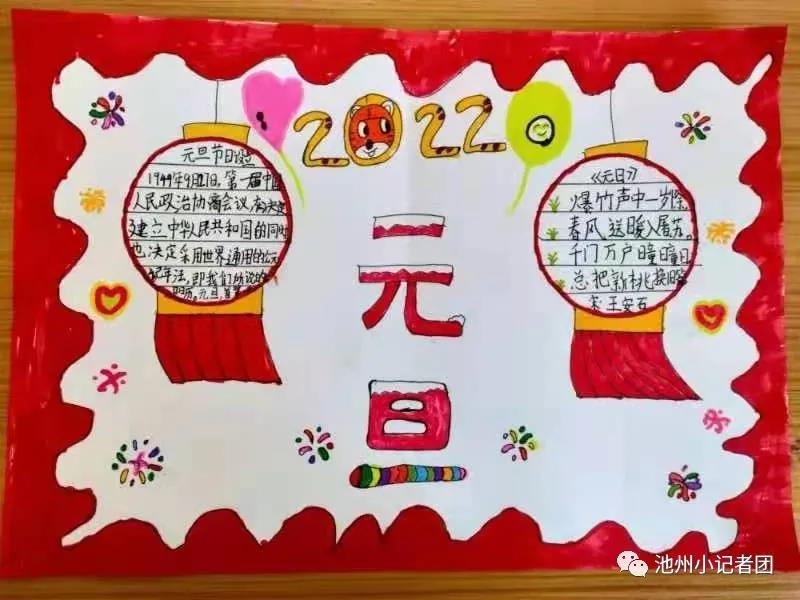 2022
元旦
元旦节日
1949年9月27日,第一届中国
人民政治协商会议
建立中华人民共和国的同时
也决定采用世界通用的公元
纪年法,即我们所说的
阳历。元旦,
《元日》
爆竹声中一岁除
春风送暖入屠苏。
千门万户曈曈日
总把新桃换旧
宋·王安石
池州小记者团